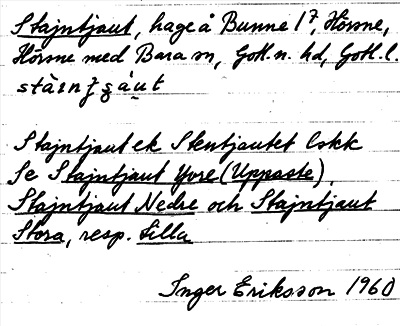 Stajntjaut, hage å Bunne 1⁷, Hörsne,
Hörsne med Bara sn, Gotl. n. hd, Gotl. l.
Stajntjaut ek Stentjautet lskk
Se Stajntjaut Yvre (Uppaste),
Stajntjaut Nedre och Stajntjaut
Stora, resp. Lilla
Inger Eriksson 1960